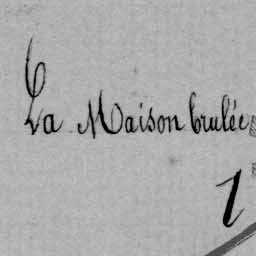 La Maison brulée
1